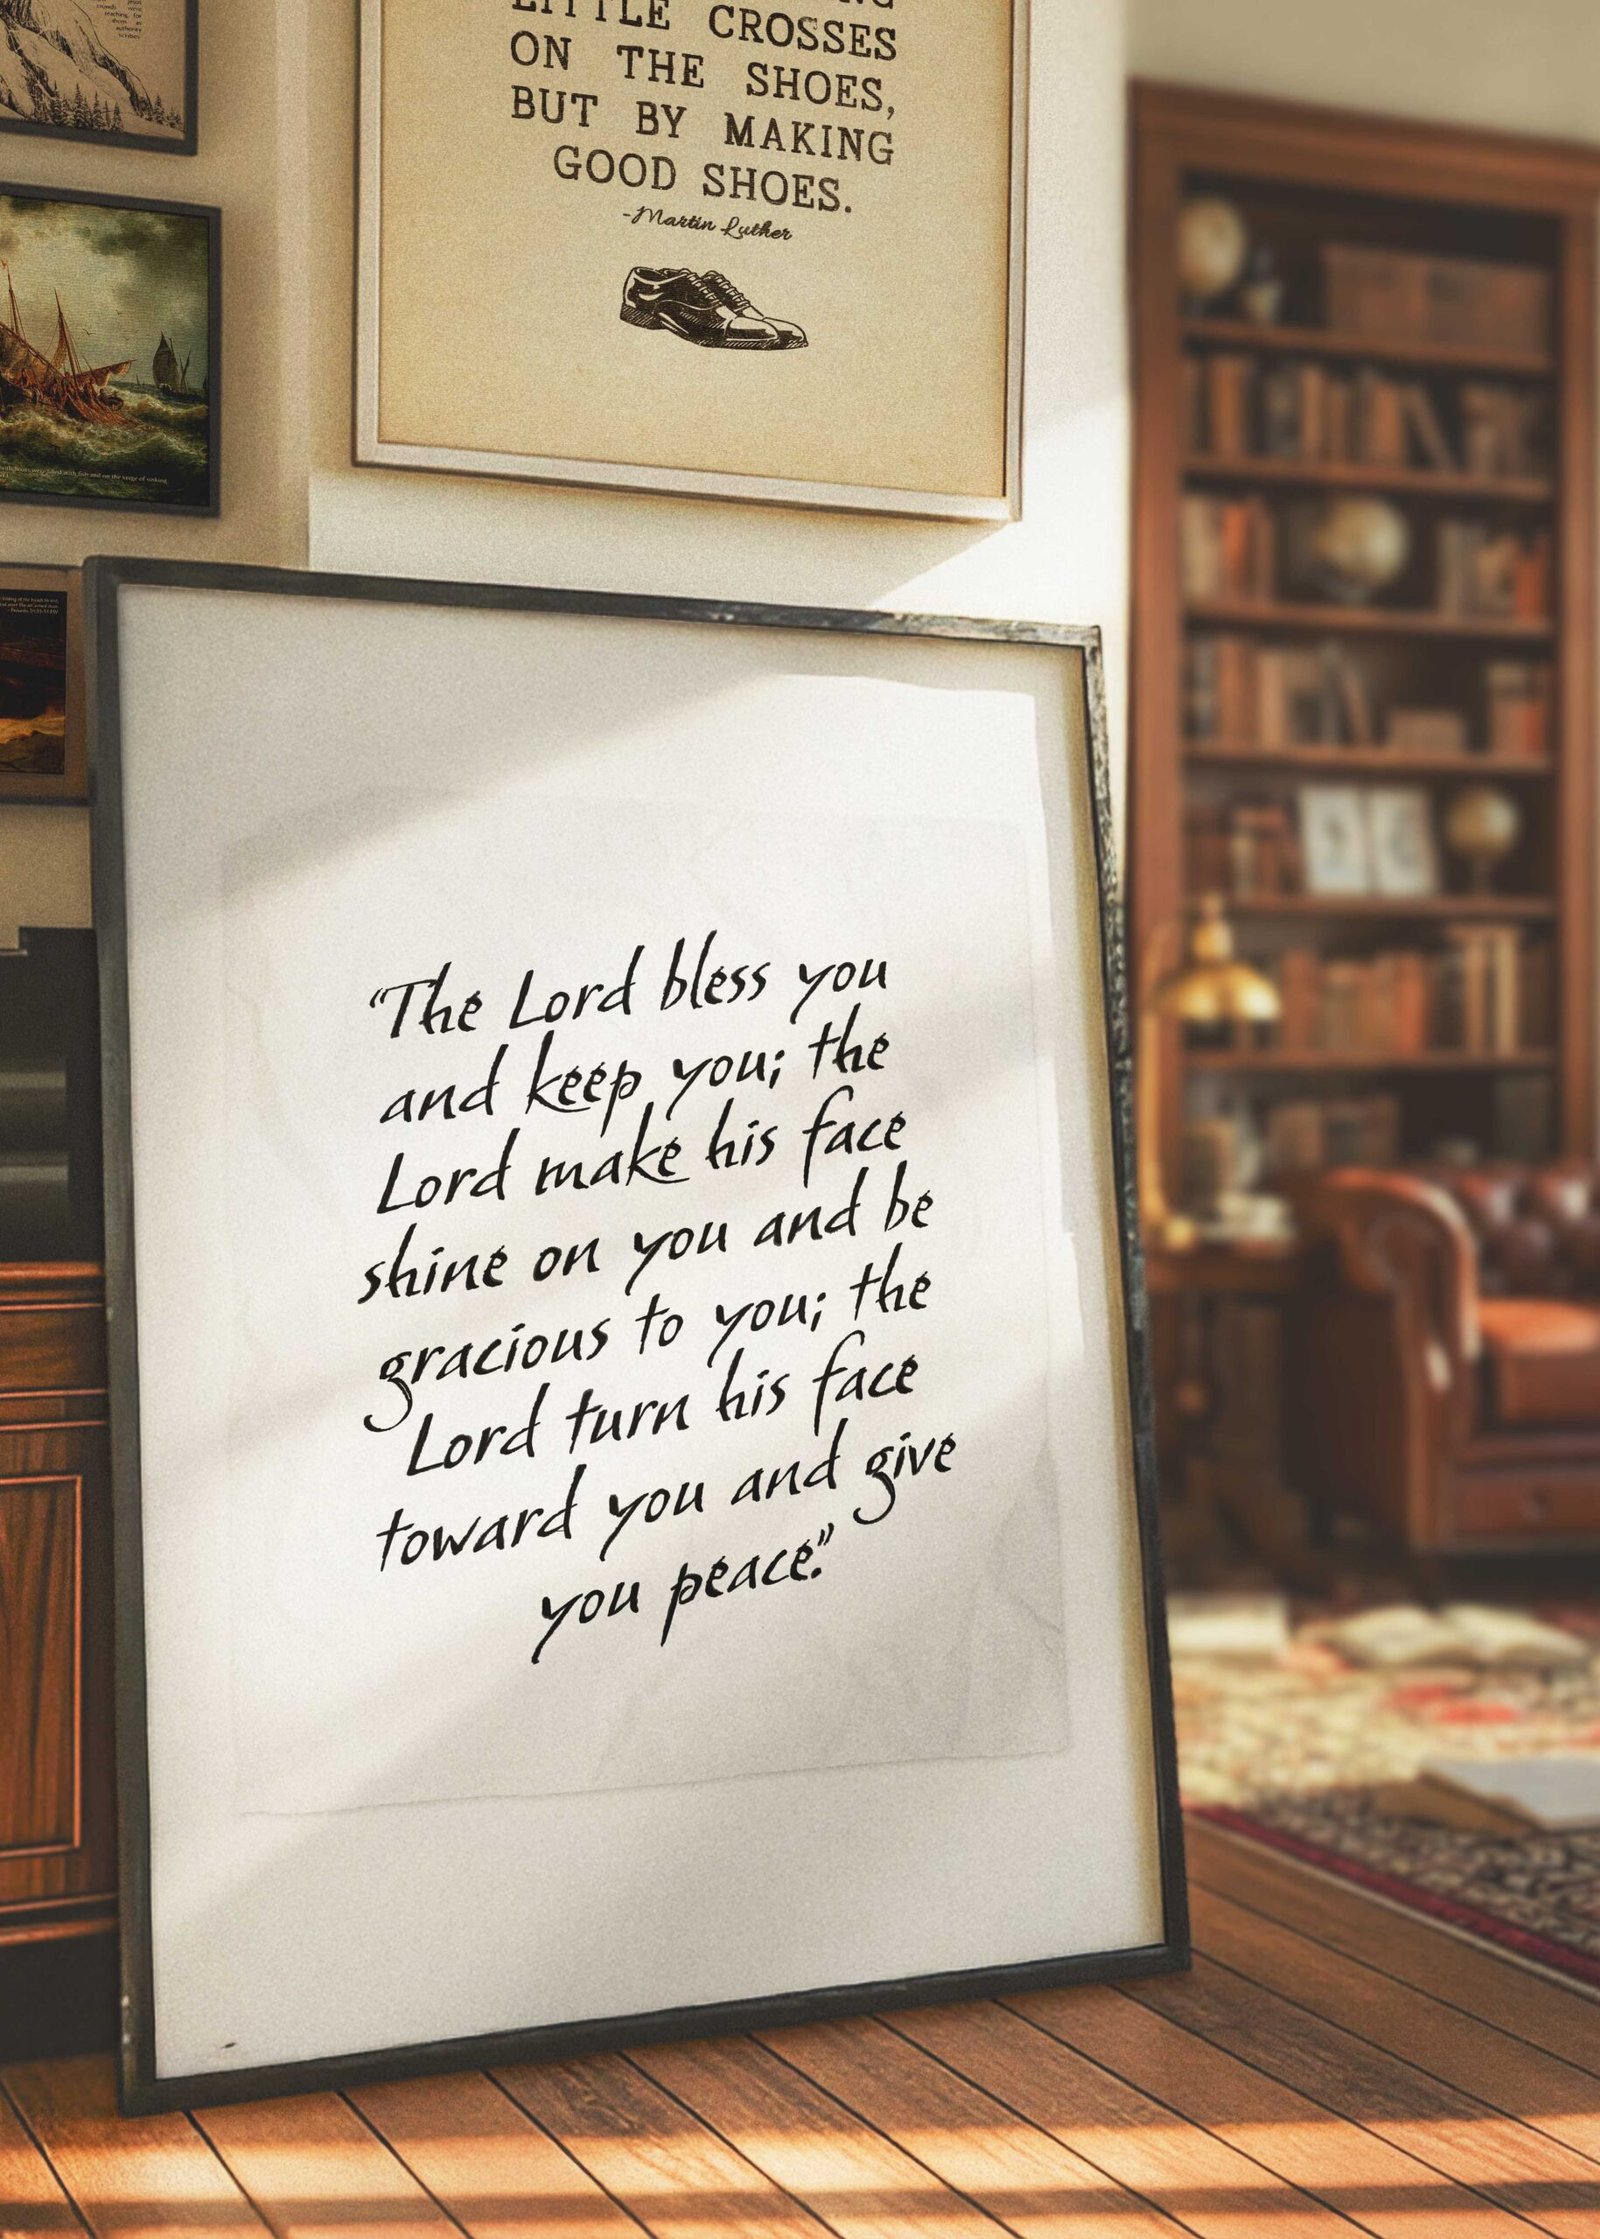 LITTLE CROSSES
ON THE SHOES,
BUT BY MAKING
GOOD SHOES.
-Martin Luther
"The Lord bless you
and keep you; the
Lord make his face
shine on you and be
gracious to you; the
Lord turn his face
toward you and give
you peace."